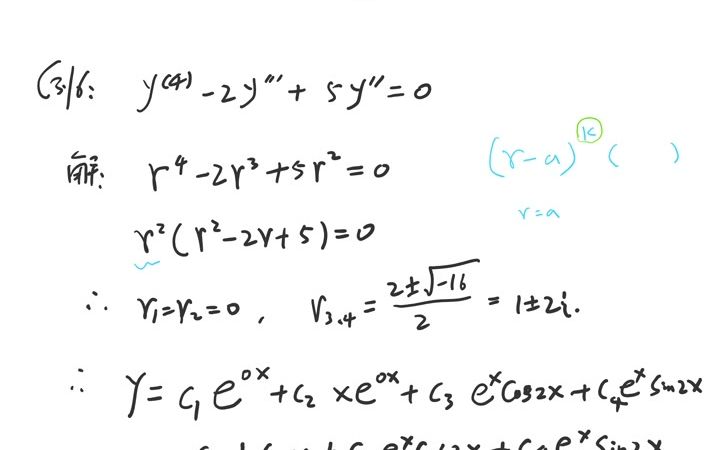 例6: y⁽⁴⁾ - 2y''' + 5y'' = 0
解: r⁴ - 2r³ + 5r² = 0
(r - a)ᵏ (      )
r = a
r² (r² - 2r + 5) = 0
∴ r₁ = r₂ = 0 , r₃.₄ = (2 ± √-16) / 2 = 1 ± 2i.
∴ y = c₁ e⁰ˣ + c₂ xe⁰ˣ + c₃ eˣ cos2x + c₄ eˣ sin2x